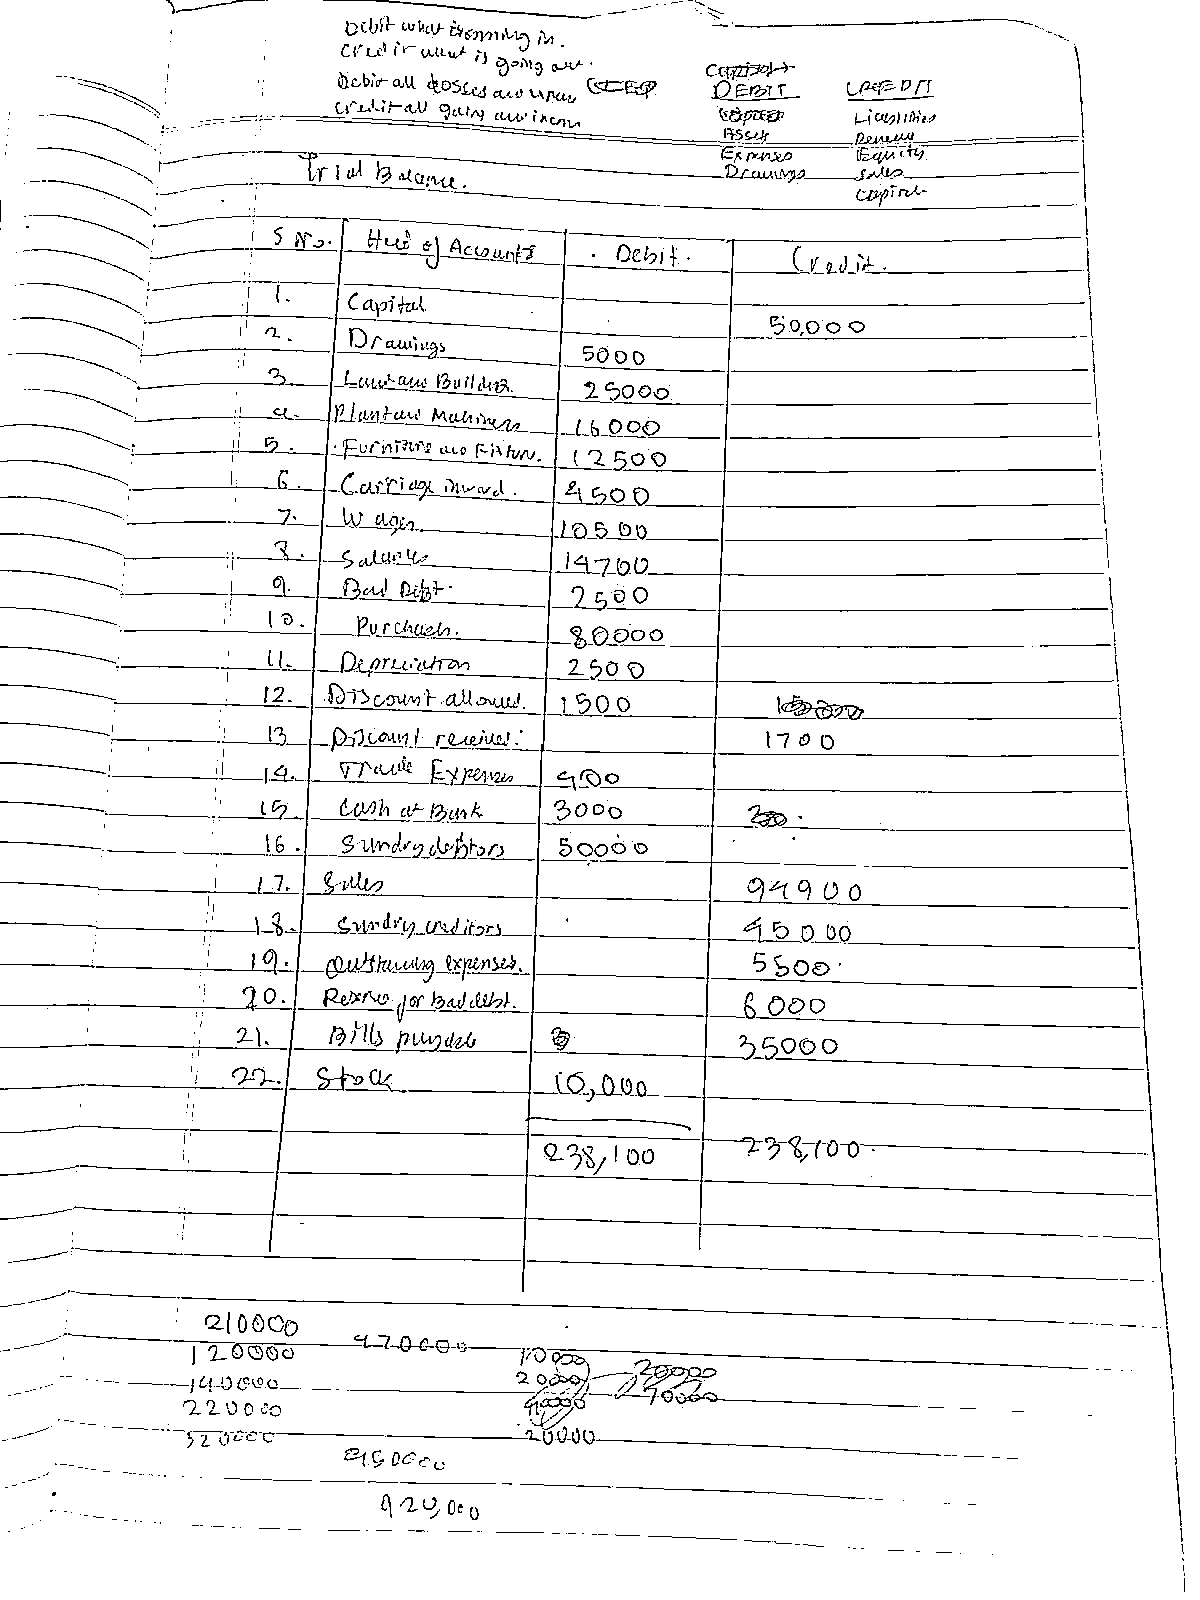 Debit what is coming in.
Credit what is going out.
Debit all losses and
credit all gains and income
DEBIT CREDIT
Liabilities
Asset
Expenses Equity
Drawings Sales
Capital
Trial Balance.
S No. Head of Accounts Debit. Credit.
1. Capital 50,000
2. Drawings 5000
3. Land and Building 25000
4. Plant and Machinery 16000
5. Furniture and Fixture. 12500
6. Carriage inward. 4500
7. Wages 10500
8. Salaries 14700
9. Bad Debt. 2500
10. Purchases. 80000
11. Depreciation 2500
12. Discount allowed. 1500
13 Discount received. 1700
14. Trade Expenses 400
15 Cash at Bank 3000
16. Sundry debtors 50000
17. Sales 94900
18. Sundry creditors 45000
19. Outstanding expenses. 5500
20. Reserve for Bad debt. 6000
21. Bills payable 35000
22. Stock 10,000
238,100 238,100
210000
120000 470000
140000
220000
520000 20000
950000
920,000